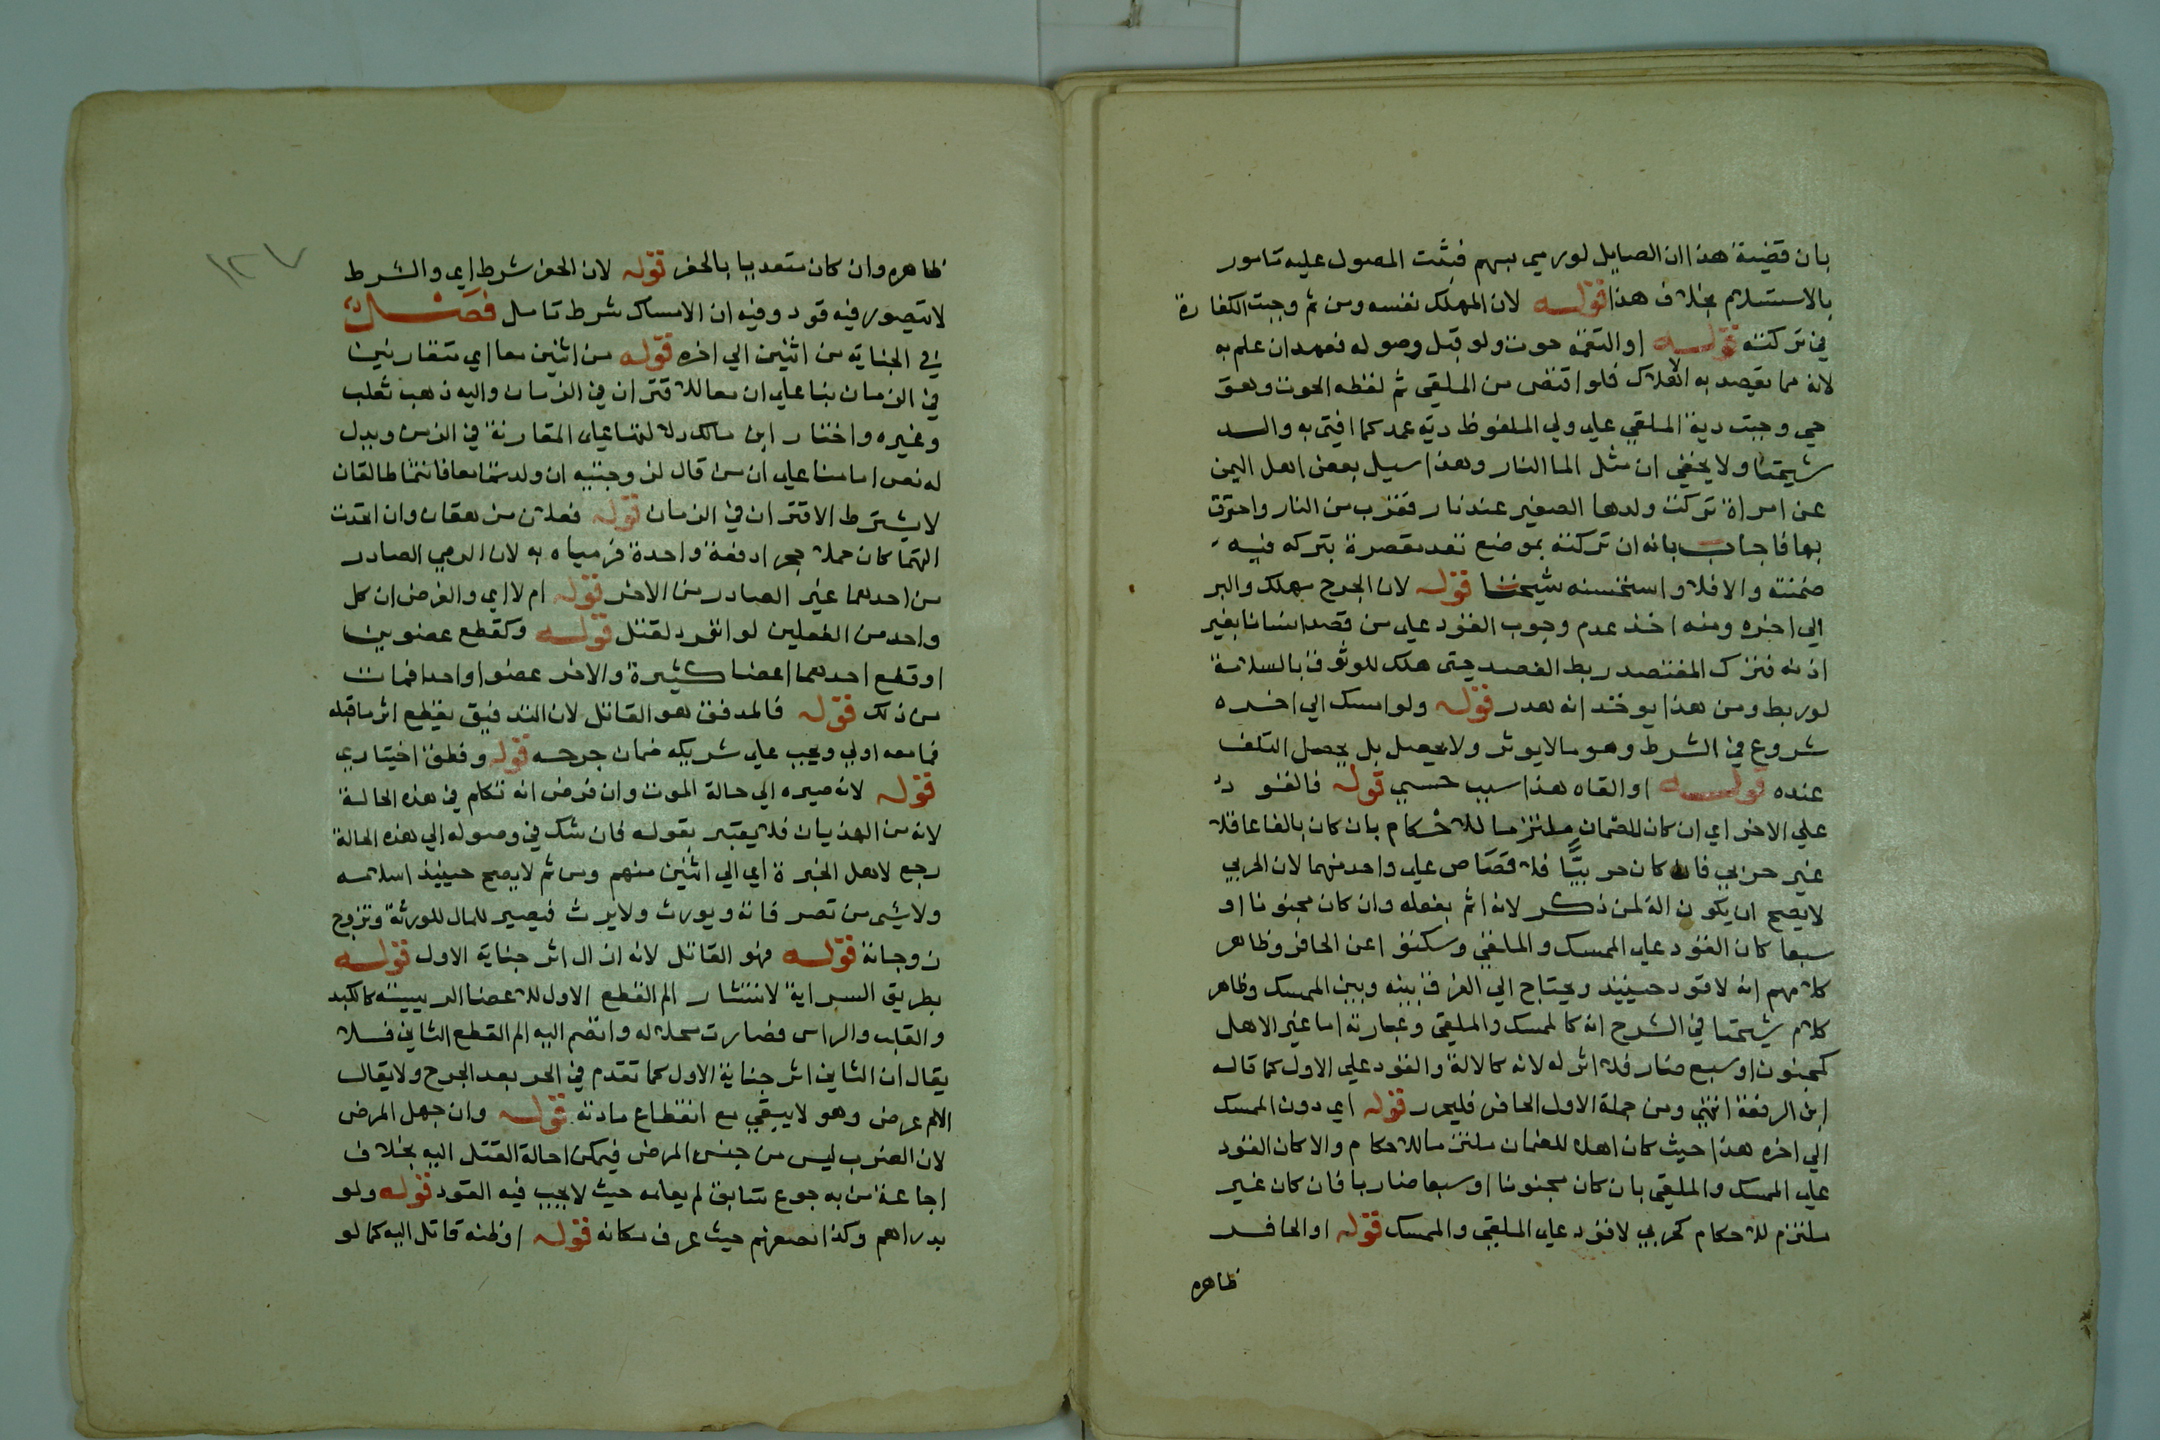 بان قضية هذا ان الصايل لو رمي بسهم فثبت المصول عليه تامور
بالاستسلام بخلاف هذا قوله لان المهلك نفسه ومن ثم وجبت الكفارة
في تركته قوله او التقمه حوت ولو قبل وصوله فعمد ان علم به
لانه مما يقصد به الهلاك فلو اقتص من الملقي ثم لفظه الحوت وهو
حي وجبت دية الملقي علي ولي الملفوظ دية عمد كما افتي به والد
شيخنا ولا يخفي ان مثل الما النار وهذا سيل بعض اهل اليمن
عن امراة تركت ولدها الصغير عند نار فقرب من النار واحترق
بها فاجاب بانه ان تركته بموضع تعد مقصرة بتركه فيه
ضمنته والا فلا واستحسنه شيخنا قوله لان الجرح مهلك والبر
الي اخره ومنه اخذ عدم وجوب القود علي من فصد انسانا بغير
اذنه فترك المفتصد ربط الفصد حتى هلك للوثوق بالسلامة
لو ربط ومن هذا يوخذ انه هدر قوله ولو امسك الي اخره
شروع في الشرط وهو ما لا يوثر ولا يحصل بل يحصل التلف
عنده قوله او القاه هذا سبب حسي قوله فالقود
علي الاخر اي ان كان للضمان ملتزما للاحكام بان كان بالغا عاقلا
غير حربي فان كان حربيًّا فلا قصاص علي واحد منهما لان الحربي
لا يصح ان يكون الة لمن ذكر لانه اثم بفعله وان كان مجنونا او
سبعا كان القود علي الممسك والملقي وسكتوا عن الحافر وظاهر
كلامهم انه لا قود حينيذ ويحتاج الي الفرق بينه وبين الممسك وظاهر
كلام شيخنا في الشرح انه كالممسك والملقي وعبارته اما غير الاهل
كمجنون او سبع ضار فلا اثر له لانه كالالة والقود علي الاول كما قاله
ابن الرفعة انتهي ومن جملة الاول الحافر فليحرر قوله اي دون الممسك
الي اخره هذا حيث كان اهلا للضمان ملتزما للاحكام والا كان القود
علي الممسك والملقي بان كان مجنونا او سبعا ضاريا فان كان غير
ملتزم للاحكام كحربي لا قود علي الملقي والممسك قوله او الحافر
ظاهره
١٢٧
ظاهره وان كان متعديا بالحفر قوله لان الحفر شرط اي والشرط
لا يتصور فيه قود وفيه ان الامساك شرط تامل فصل
في الجناية من اثنين الي اخره قوله من اثنين معا اي متقارنين
في الزمان بنا علي ان معا للاقتران في الزمان واليه ذهب ثعلب
وغيره واختار ابن مالك دلالتها علي المقارنة في الزمن ويدل
له نص امامنا علي ان من قال لزوجتيه ان ولدتما معا فانتما طالقان
لا يشترط الاقتران في الزمان قوله فعلان مزهقان وان اتحدت
الهتما كان حملا حجرا دفعة واحدة فرمياه به لان الرمي الصادر
من احدهما غير الصادر من الاخر قوله ام لا اي والفرض ان كل
واحد من الفعلين لو انفرد لقتل قوله وكقطع عضوين
او قطع احدهما اعضا كثيرة والاخر عضوا واحدا فمات
من ذلك قوله فالمدفف هو القاتل لان التذفيف يقطع اثر ما قبله
فما معه اولي ويجب علي شريكه ضمان جرحه قوله ونطق اختياري
قوله لانه صيره الي حالة الموت وان فرض انه تكلم في هذه الحالة
لانه من الهذيان فلا يعتبر بقوله فان شك في وصوله الي هذه الحالة
رجع لاهل الخبرة اي الي اثنين منهم ومن ثم لا يصح حينيذ اسلامه
ولا شي من تصرفاته ويورث ولا يرث فيصير المال للورثة وتزوج
زوجاته قوله فهو القاتل لانه ازال اثر جناية الاول قوله
بطريق السراية لانتشار الم القطع الاول للاعضا الرييسة كالكبد
والقلب والراس فصارت محلا له وانضم اليه الم القطع الثاني فلا
يقال ان الثاني اثر جناية الاول كما تقدم في الحز بعد الجرح ولا يقال
الالم عرض وهو لا يبقي مع انقطاع مادته قوله وان جهل المرض
لان الضرب ليس من جنس المرض فيمكن احالة القتل اليه بخلاف
اجاعة من به جوع سابق لم يعلمه حيث لا يجب فيه القود قوله ولو
بدراهم وكذا بصفهم حيث عرف مكانه قوله او ظنه قاتل ابيه كما لو